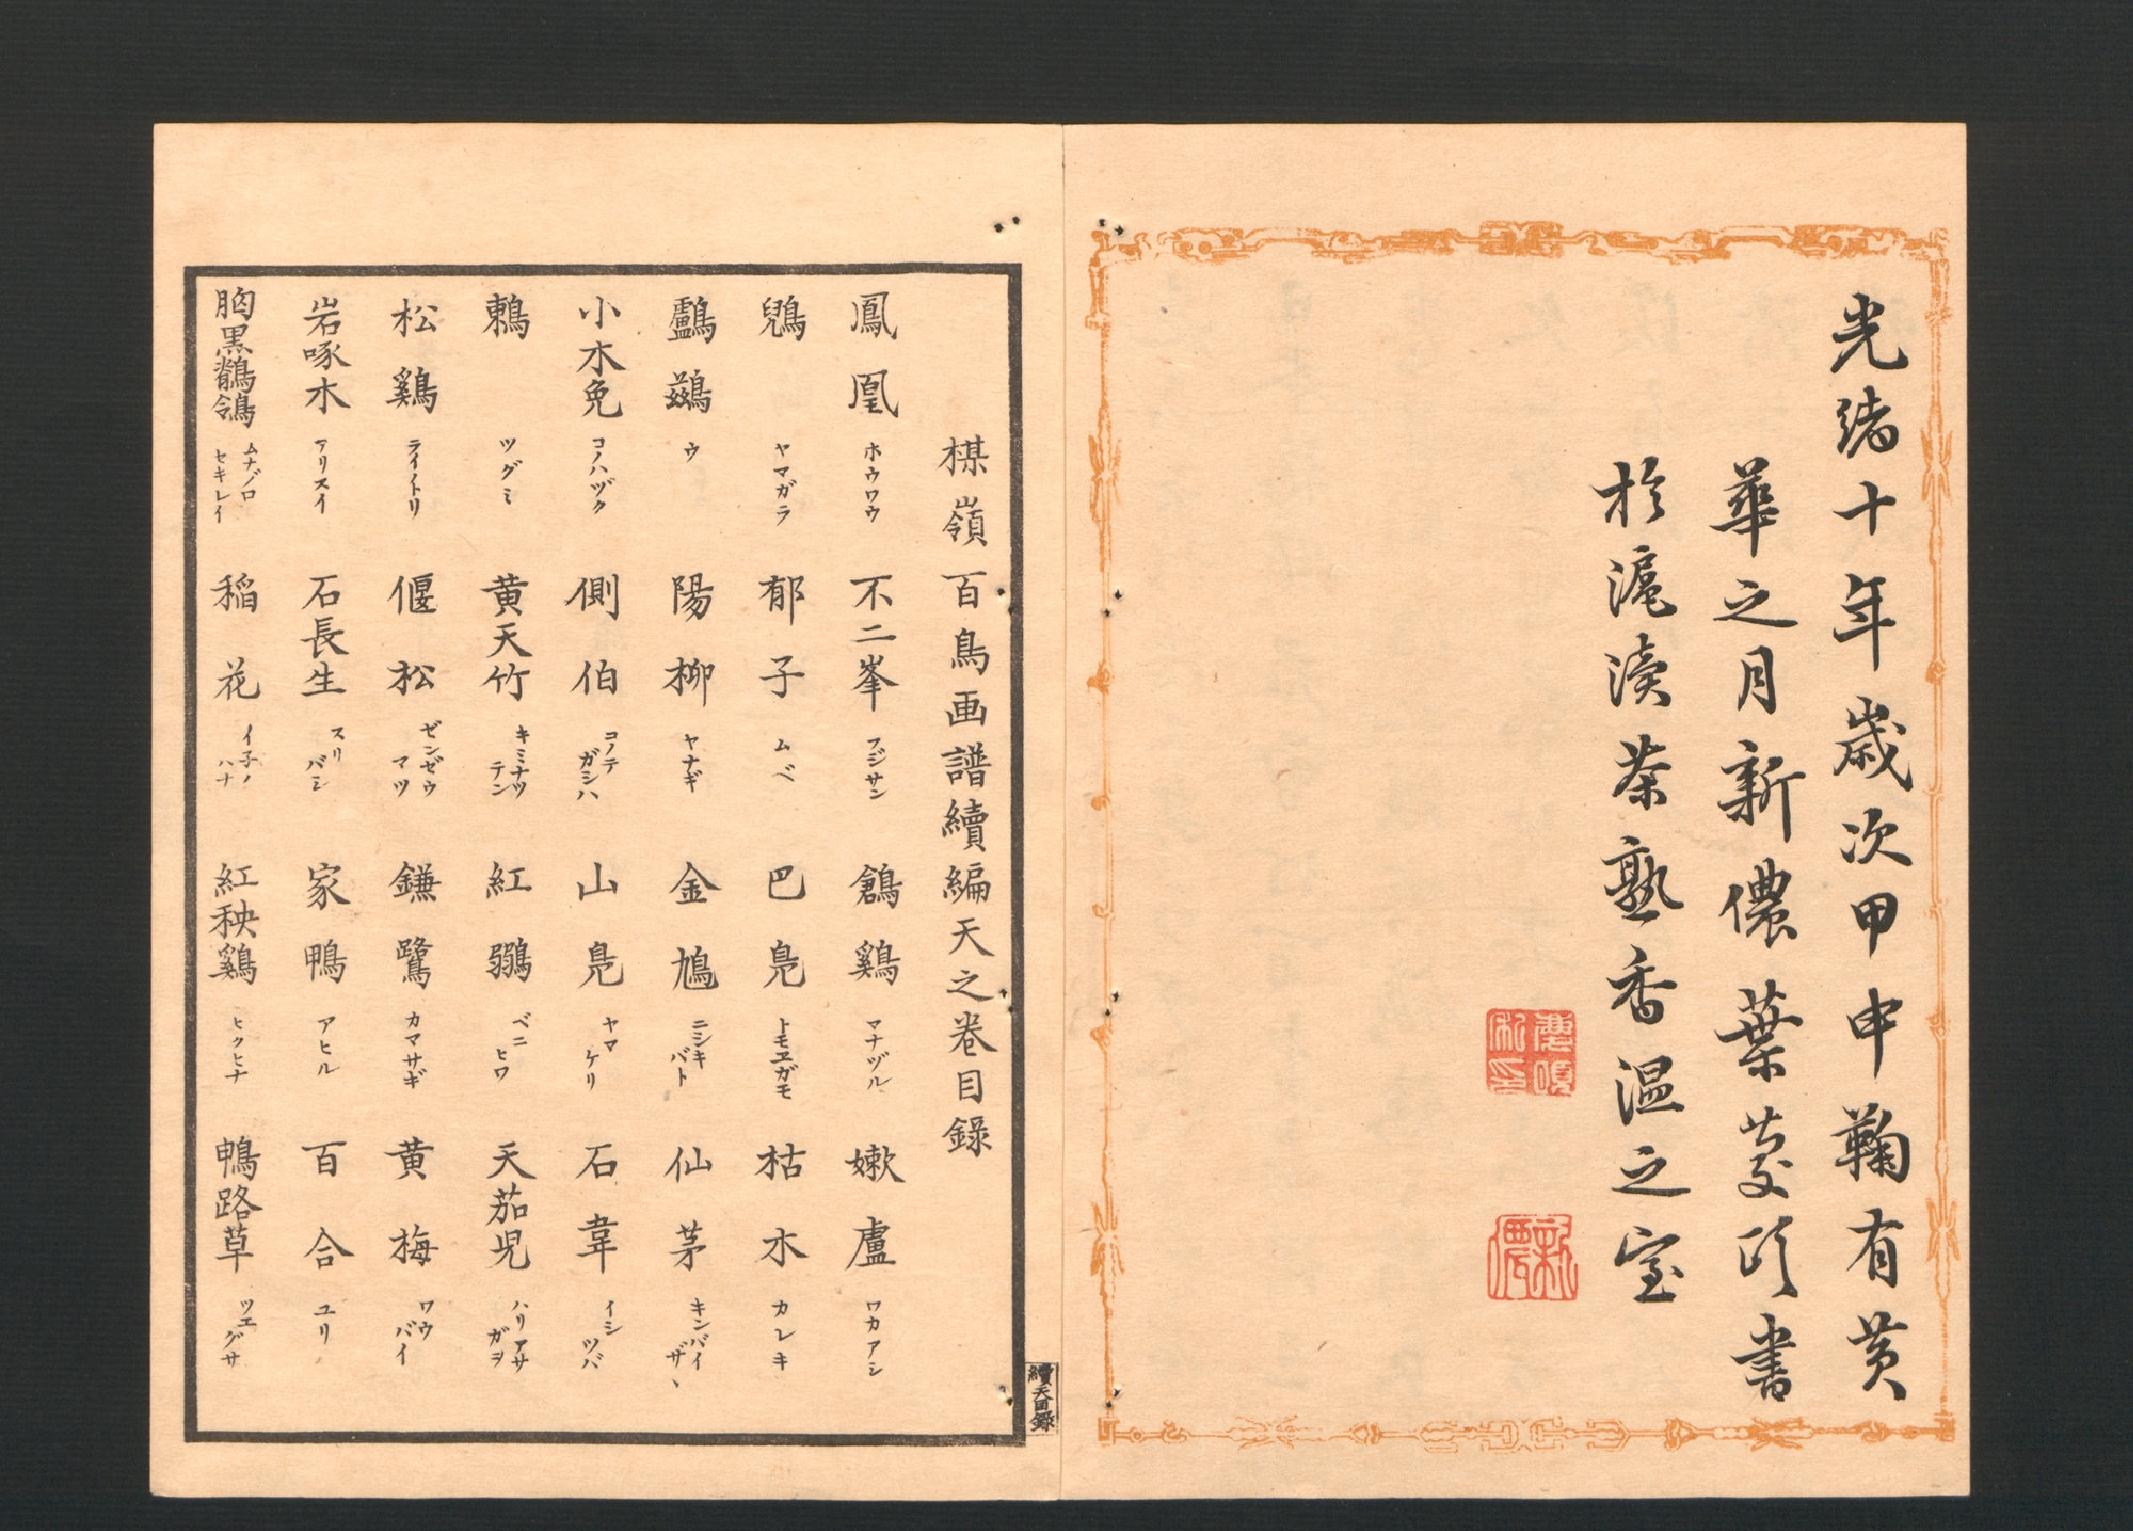 光緒十年歲次甲申鞠有黃
華之月新儂葉慶頤書
於滬瀆茶熟香温之室
新儂
楳嶺百鳥画譜續編天之巻目錄
鳳凰 ホウワウ 不二峯 フジサン 鶬鷄 マナヅル 嫰盧 ワカアシ
鴲 ヤマガラ 郁子 ムベ 巴鳧 トモヱガモ 枯木 カレキ
鸕鷀 ウ 陽柳 ヤナギ 金鳩 ニシキバト 仙茅 キンバイザヽ
小木兔 コノハヅク 側伯 コノテガシハ 山鳧 ヤマケリ 石韋 イシツバ
鶫 ツグミ 黄天竹 キミナツテン 紅鶸 ベニヒワ 天茄児 ハリアサガヲ
松鷄 ライノトリ 偃松 ゼンゼウマツ 鎌鷺 カマサギ 黄梅 ワウバイ
岩啄木 アリスイ 石長生 スリバシ 家鴨 アヒル 百合 ユリ
胸黒鶺鴒 ムナグロセキレイ 稲花 イ子ノハナ 紅秧鷄 ヒクヒナ 鴨路草 ツユグサ
續天目錄